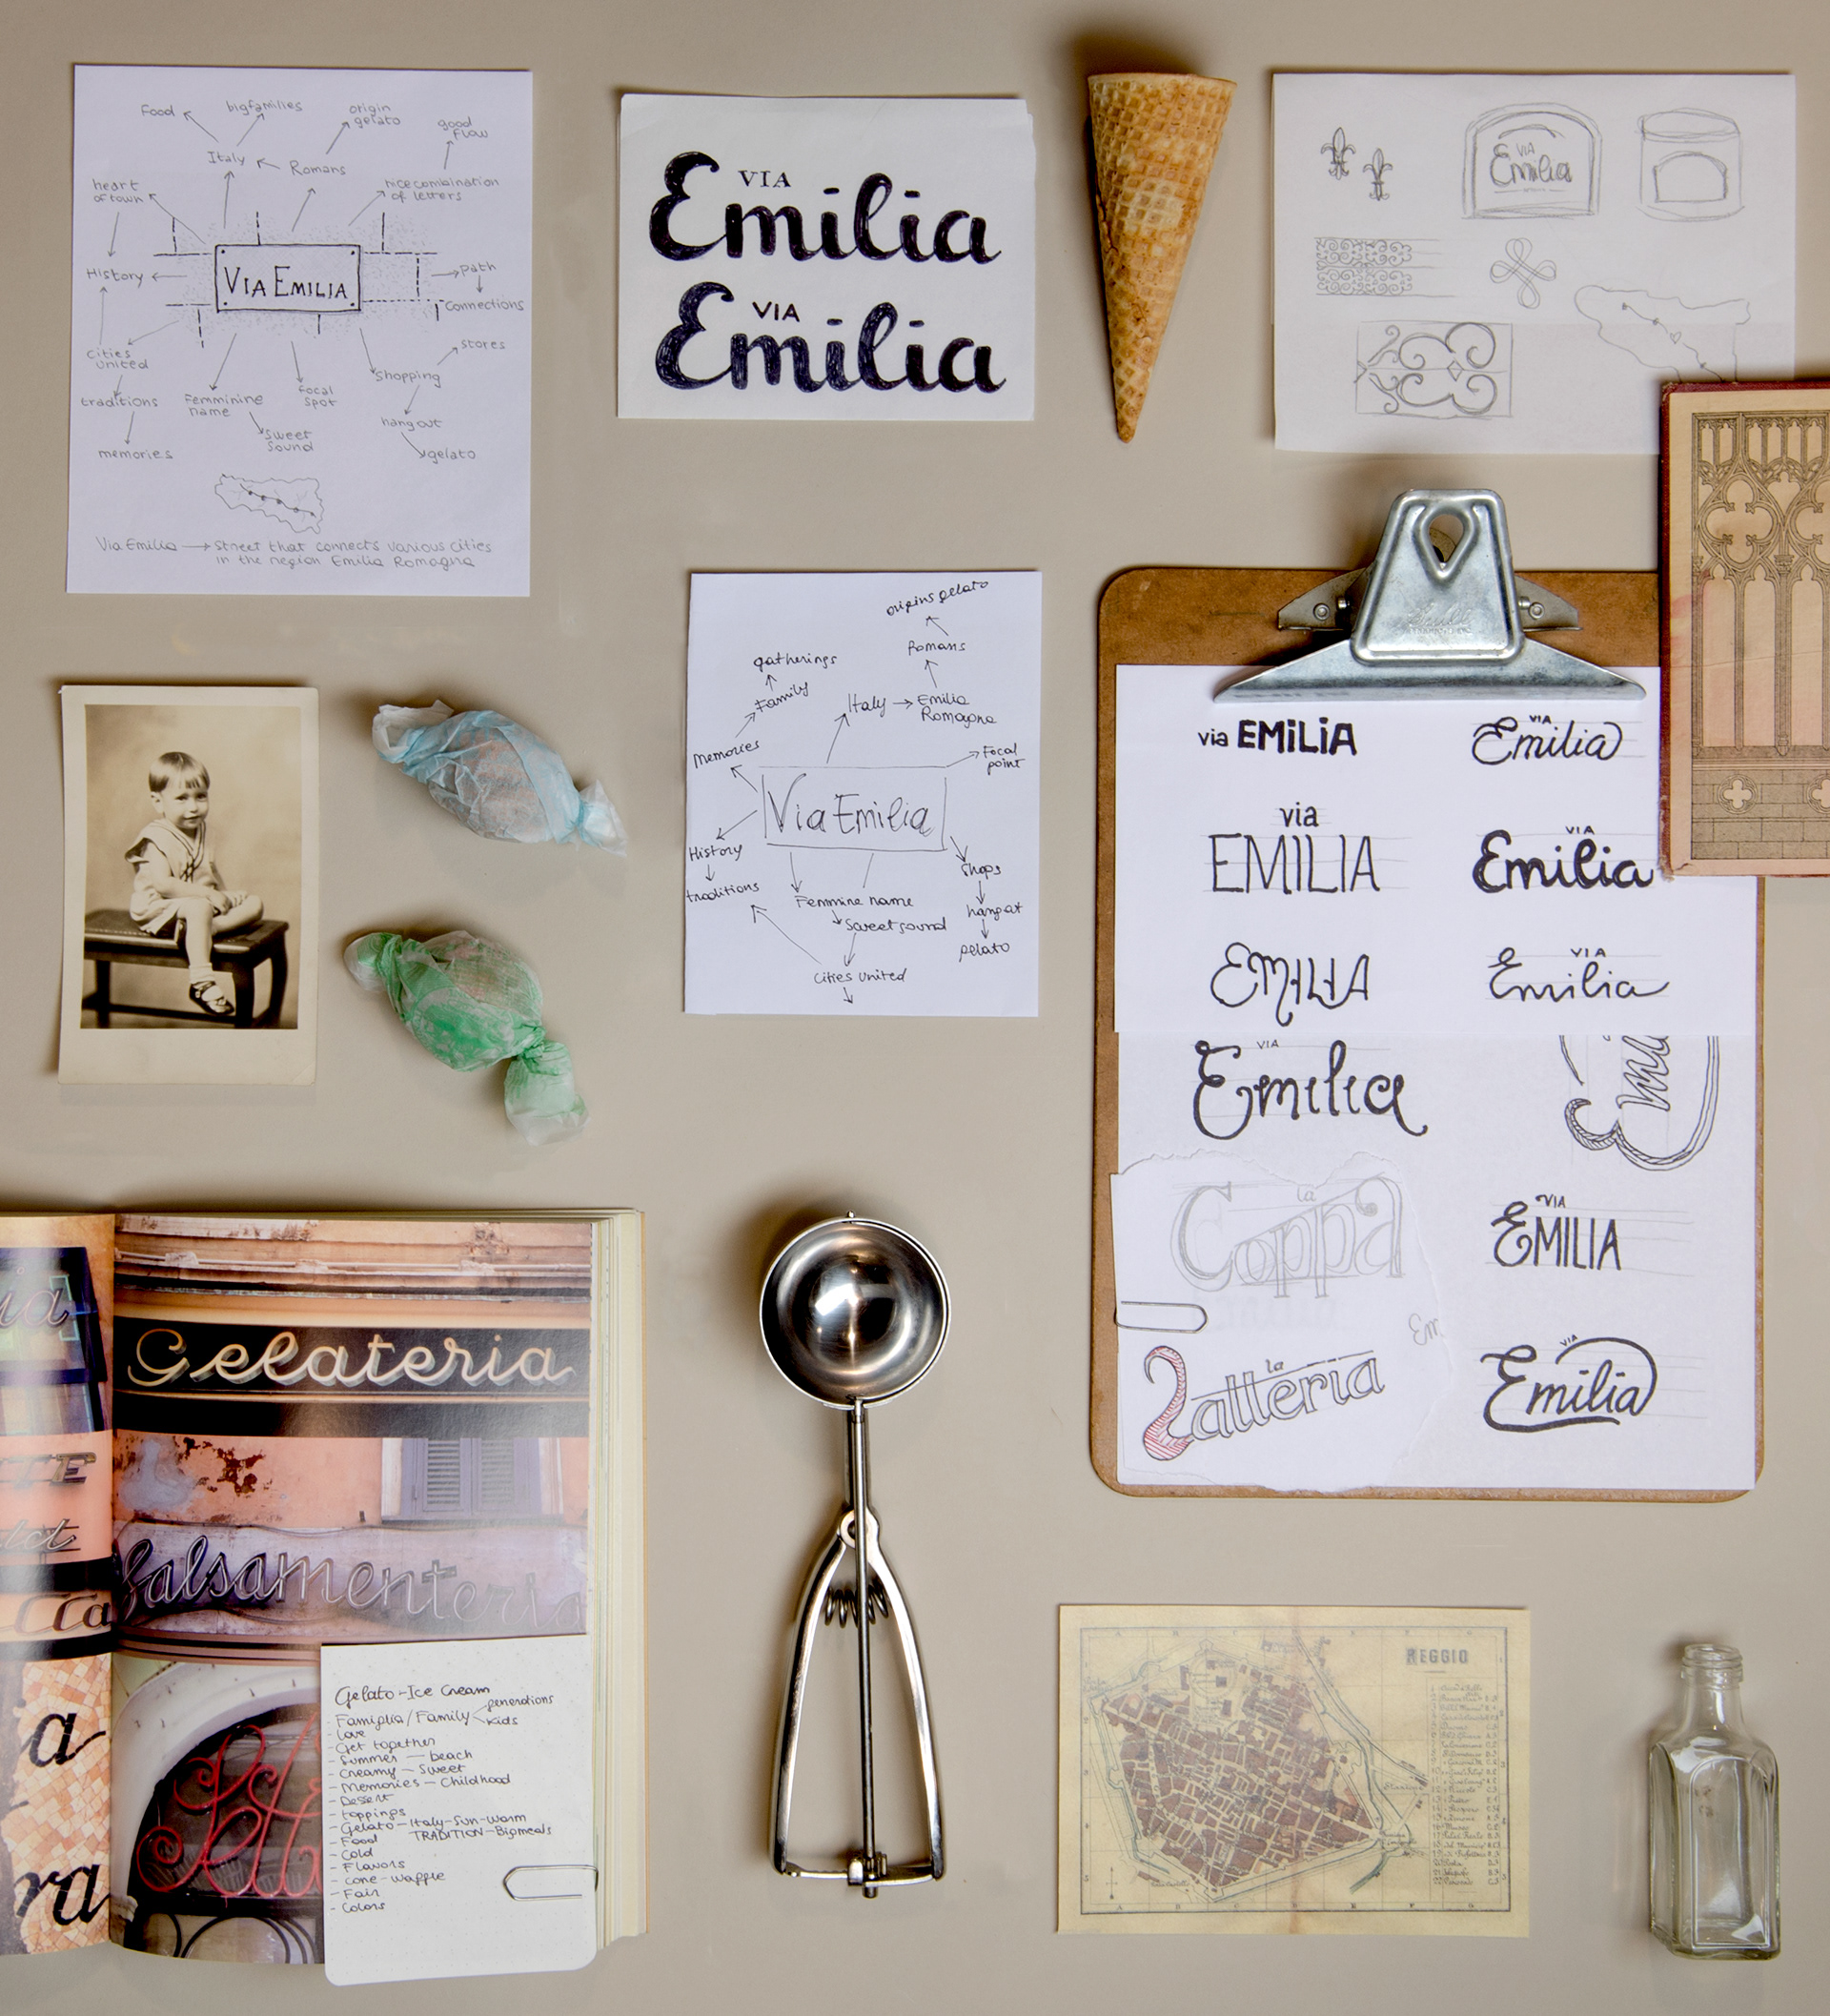 Food
bigfamilies
origin
gelato
good
flow
Italy
Romans
heart
of town
nice combination
of letters
History
VIA EMILIA
path
Connections
cities
united
stores
Shopping
traditions
Femminine
name
focal
spot
hangout
memories
Sweet
Sound
gelato
Via Emilia → Street that connects various cities
in the region Emilia Romagna
VIA
Emilia
VIA
Emilia
VIA
Emilia
origins gelato
Romans
gatherings
Family
Italy → Emilia
Romagna
Memories
Focal
point
Via Emilia
History
traditions
Shops
Femmine name
Sweet sound
hangout
gelato
cities united
via EMILIA
VIA
Emilia
via
EMILIA
VIA
Emilia
EMILIA
VIA
Emilia
VIA
Emilia
la
Coppa
VIA
EMILIA
Em
la
Latteria
VIA
Emilia
Gelateria
Salsamenteria
Gelato - Ice Cream
- Famiglia / Family
generations
kids
- Love
- Get together
- Summer — beach
- Creamy — Sweet
- Memories — Childhood
- Dessert
- toppings
- Gelato - Italy - Sun - Warm
- Food TRADITION - Bigmeals
- Cold
- Flavors
- cone - wapple
- Fair
- Colors
REGGIO